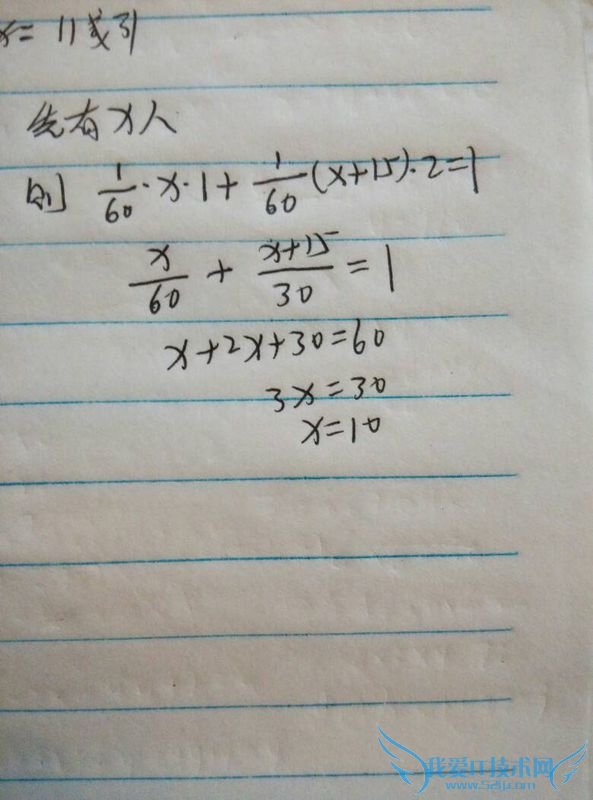 x= 11或31
先有x人
则 1/60·x·1+1/60(x+15)·2=1
x/60+(x+15)/30=1
x+2x+30=60
3x=30
x=10
我爱IT技术网
www.52ij.com